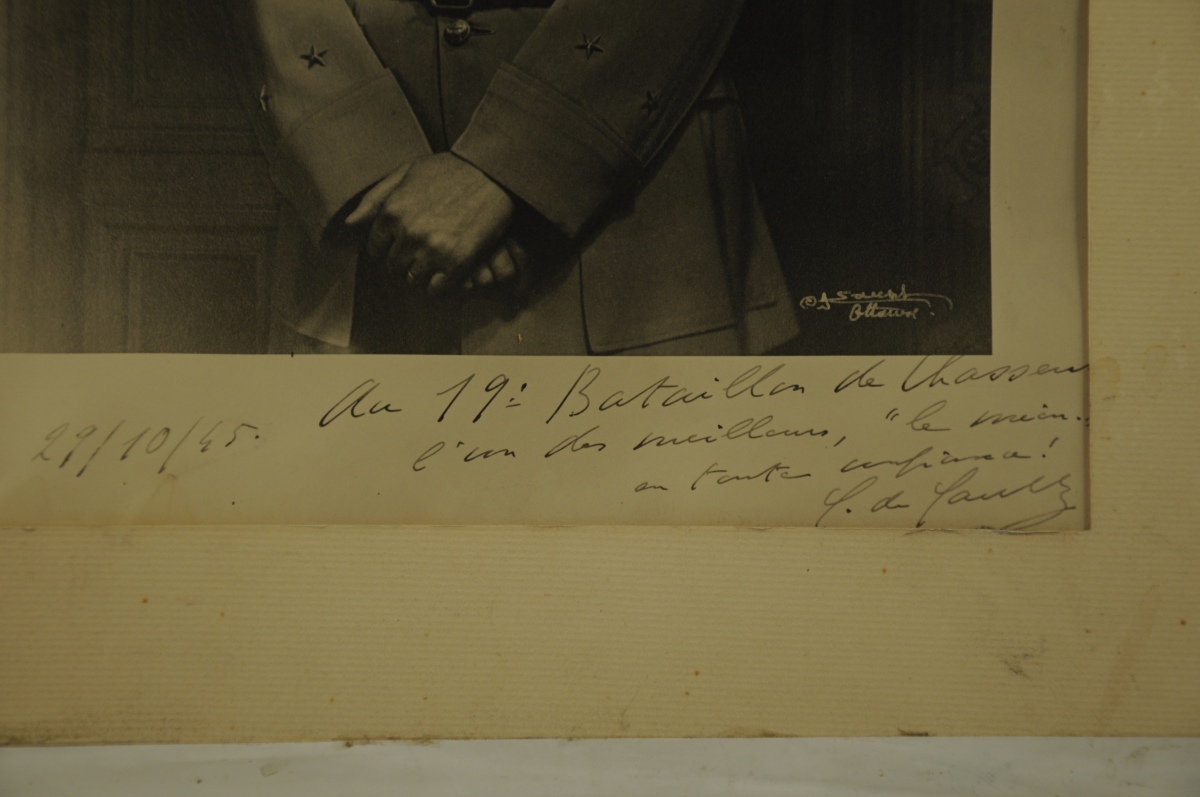 © Karsh
Ottawa.
Au 19e Bataillon de Chasseurs
29/10/45. l'un des meilleurs, "le mien"..
en toute confiance!
C. de Gaulle